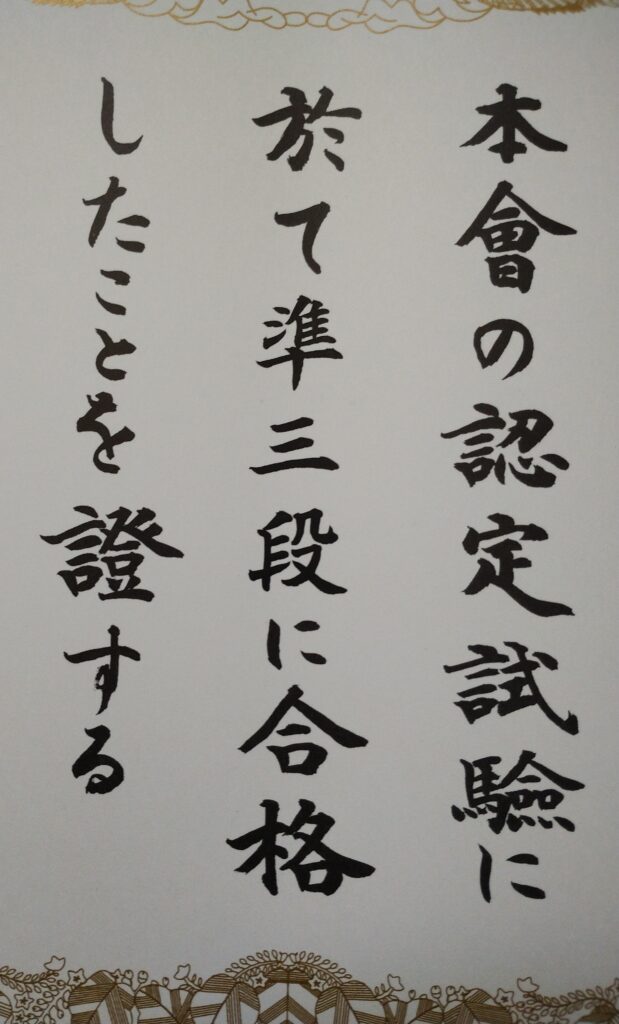 本會の認定試驗に
於て準三段に合格
したことを證する